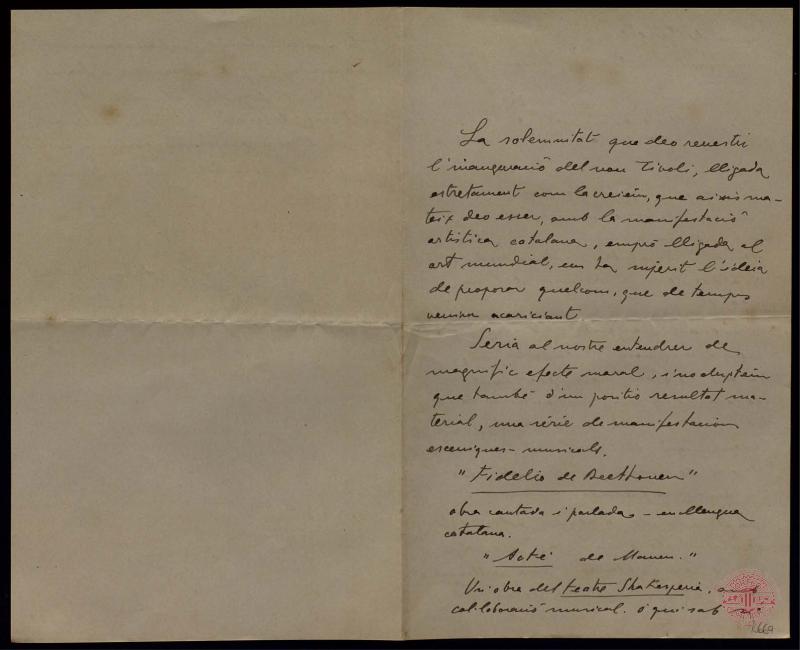 La solemnitat que deo revestir
l'inauguració del nou Tívoli, lligada
estretament com la creiem, que aixis ma-
teix deo esser, amb la manifestació
artistica catalana, emprò lligada al
art mundial, ens ha sujerit l'ideia
de proposar quelcom, que de temps
veniem acariciant
Seria al nostre entendrer de
magnific efecte moral, i no duptem
que també d'un positiu resultat ma-
terial, una série de manifestacions
esceniques-musicals.
"Fidelio de Beethoven"
obra cantada i parlada - en llengua
catalana.
"Acté de Manen."
Un' obra del teatre Shakesperiá, amb
col·loboració musical. ó qui sab
669